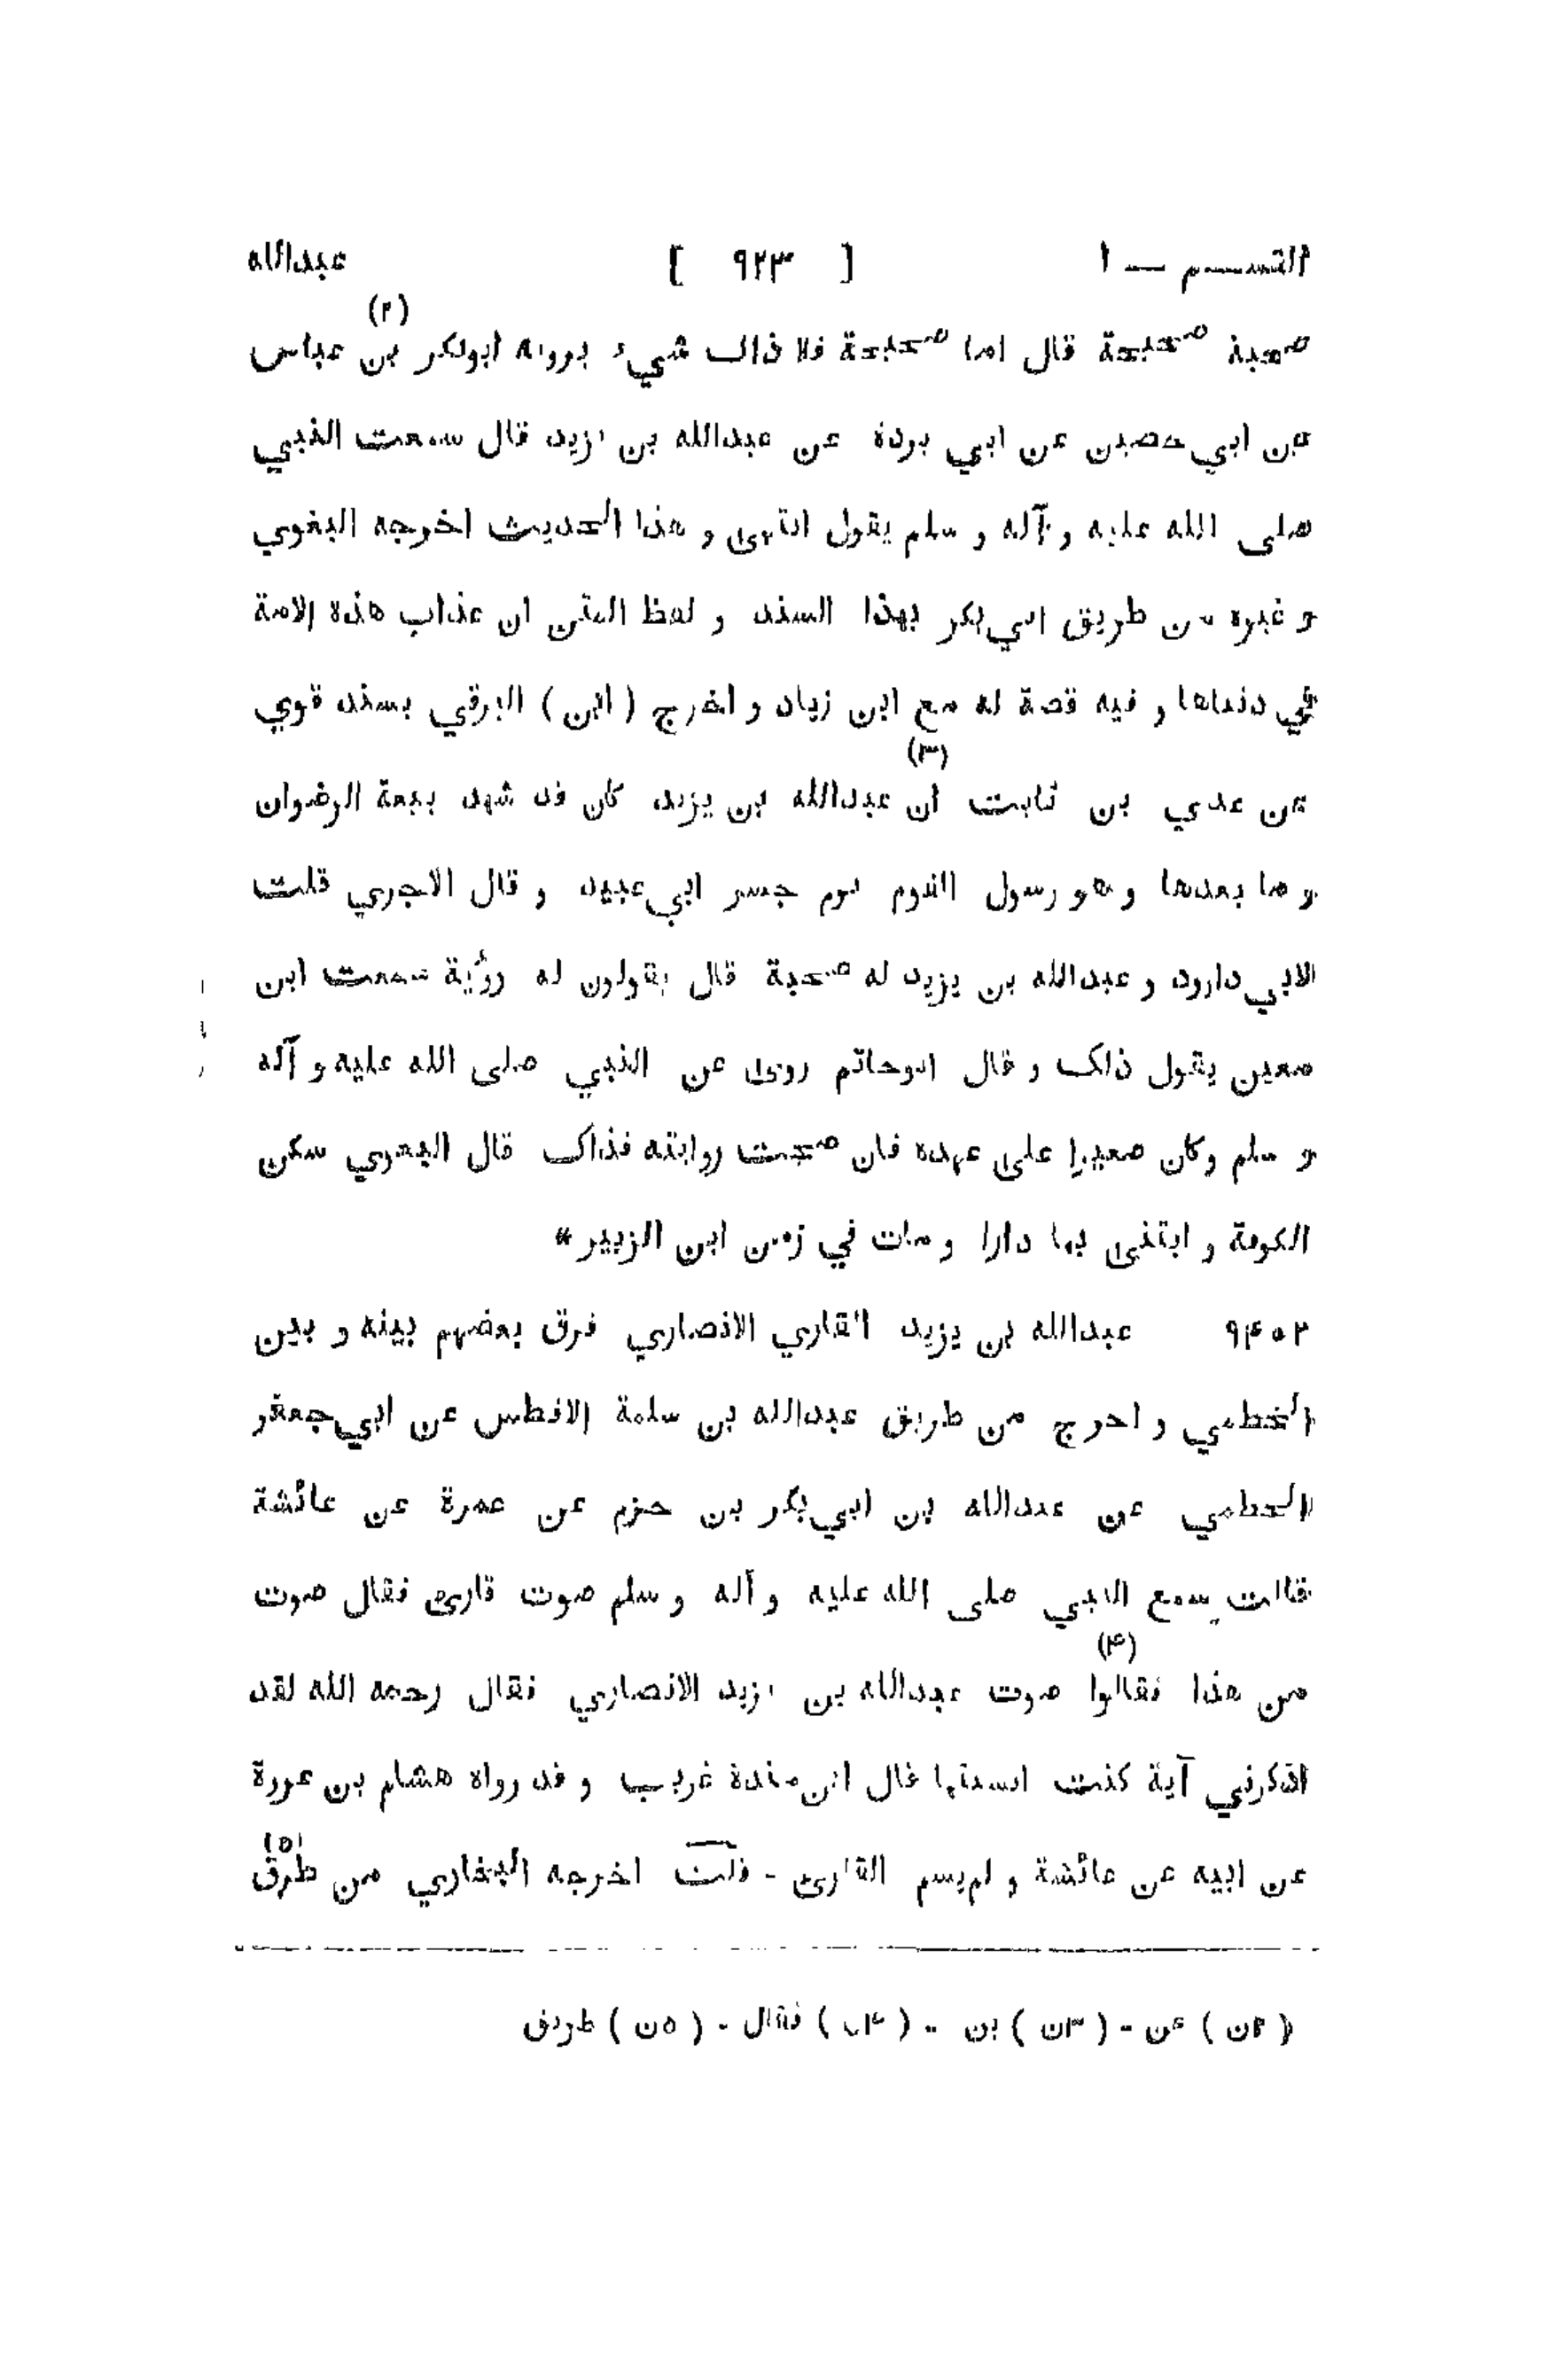 القســـم — ١ [ ٩٢٣ ] عبدالله
صحبة صحيحة قال اما صحيحة فلا ذاك شيء يرويه ابوبكر بن (٢) عباس
عن ابي حصين عن ابي بردة عن عبدالله بن يزيد قال سمعت النبي
صلى الله عليه و آله و سلم يقول انتهى و هذا الحديث اخرجه البغوي
و غيره من طريق ابي بكر بهذا السند و لفظ المتن ان عذاب هذه الامة
في دنياها و فيه قصة له مع ابن زياد و اخرج ( ابن ) البرقي بسند قوي
عن عدي بن ثابت ان (٣) عبدالله بن يزيد كان قد شهد بيعة الرضوان
و ما بعدها و هو رسول القوم يوم جسر ابي عبيد و قال الاجري قلت
لابي داوود و عبدالله بن يزيد له صحبة قال يقولون له رؤية سمعت ابن
معين يقول ذلك و قال ابوحاتم روى عن النبي صلى الله عليه و آله
و سلم وكان صغيرا على عهده فان صحت روايته فذاك قال البغوي سكن
الكوفة و ابتنى بها دارا و مات في زمن ابن الزبير *
٩٤٠٢ عبدالله بن يزيد القاري الانصاري فرق بعضهم بينه و بين
الخطمي و اخرج من طريق عبدالله بن سلمة الافطس عن ابي جعفر
الخطمي عن عبدالله بن ابي بكر بن حزم عن عمرة عن عائشة
قالت سمع النبي صلى الله عليه و آله و سلم صوت قارئ فقال صوت
من هذا فقالوا (٤) صوت عبدالله بن يزيد الانصاري فقال رحمه الله لقد
اذكرني آية كنت انسيتها قال ابن مندة غريب و قد رواه هشام بن عروة
عن ابيه عن عائشة و لم يسم القارئ - قلت اخرجه البخاري من طرق (٥)
( ٢ن ) عن - ( ٣ن ) بن - ( ٤ب ) فقال - ( ٥ن ) طريق